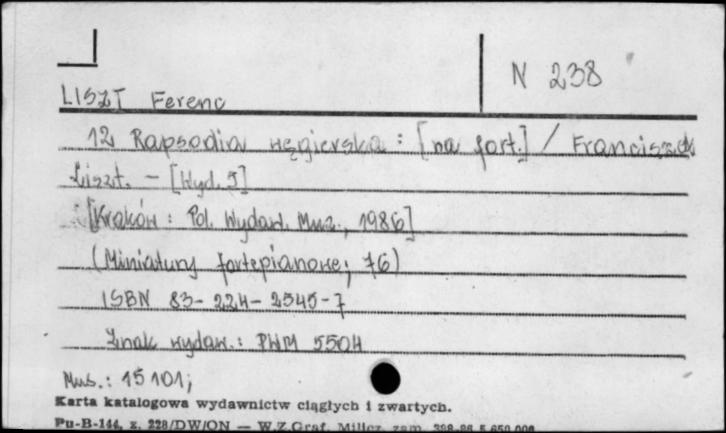 N 238
LISZT Ferenc
12 Rapsodia węgierska : [na fort.] / Franciszek
Liszt. – [Wyd. 5]
[Kraków : Pol. Wydaw. Muz., 1986]
(Miniatury fortepianowe; 76)
ISBN 83-224-2545-7
Znak wydaw.: PWM 5504
Mus.: 15 101;
Karta katalogowa wydawnictw ciągłych i zwartych.
Pu-B-144, z. 228/DW/ON — W.Z.Graf. Milicz, zam. 398-86 5.650.000